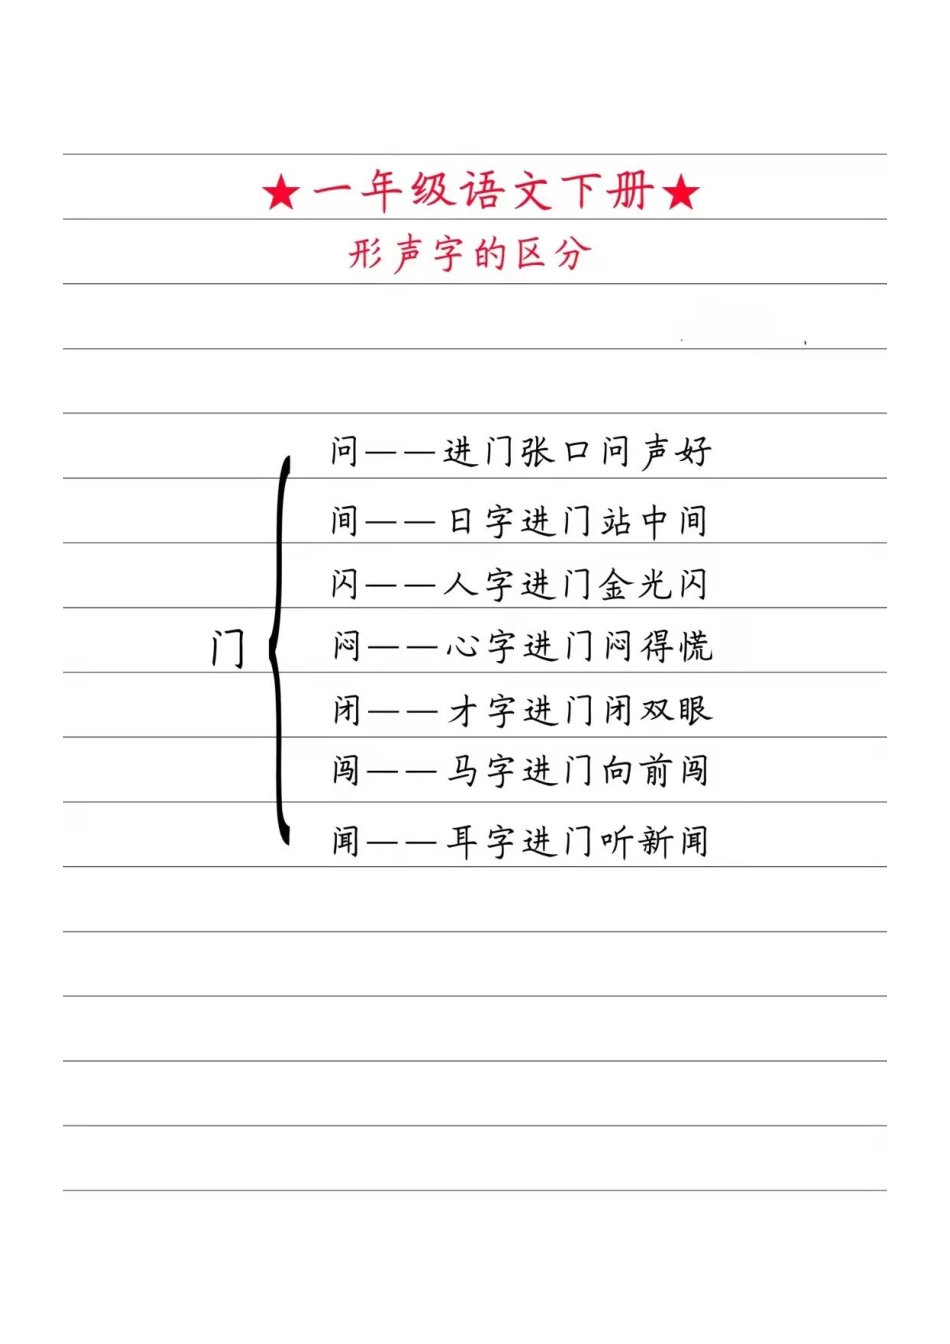 ★一年级语文下册★
形声字的区分
问——进门张口问声好
间——日字进门站中间
闪——人字进门金光闪
门
闷——心字进门闷得慌
闭——才字进门闭双眼
闯——马字进门向前闯
闻——耳字进门听新闻